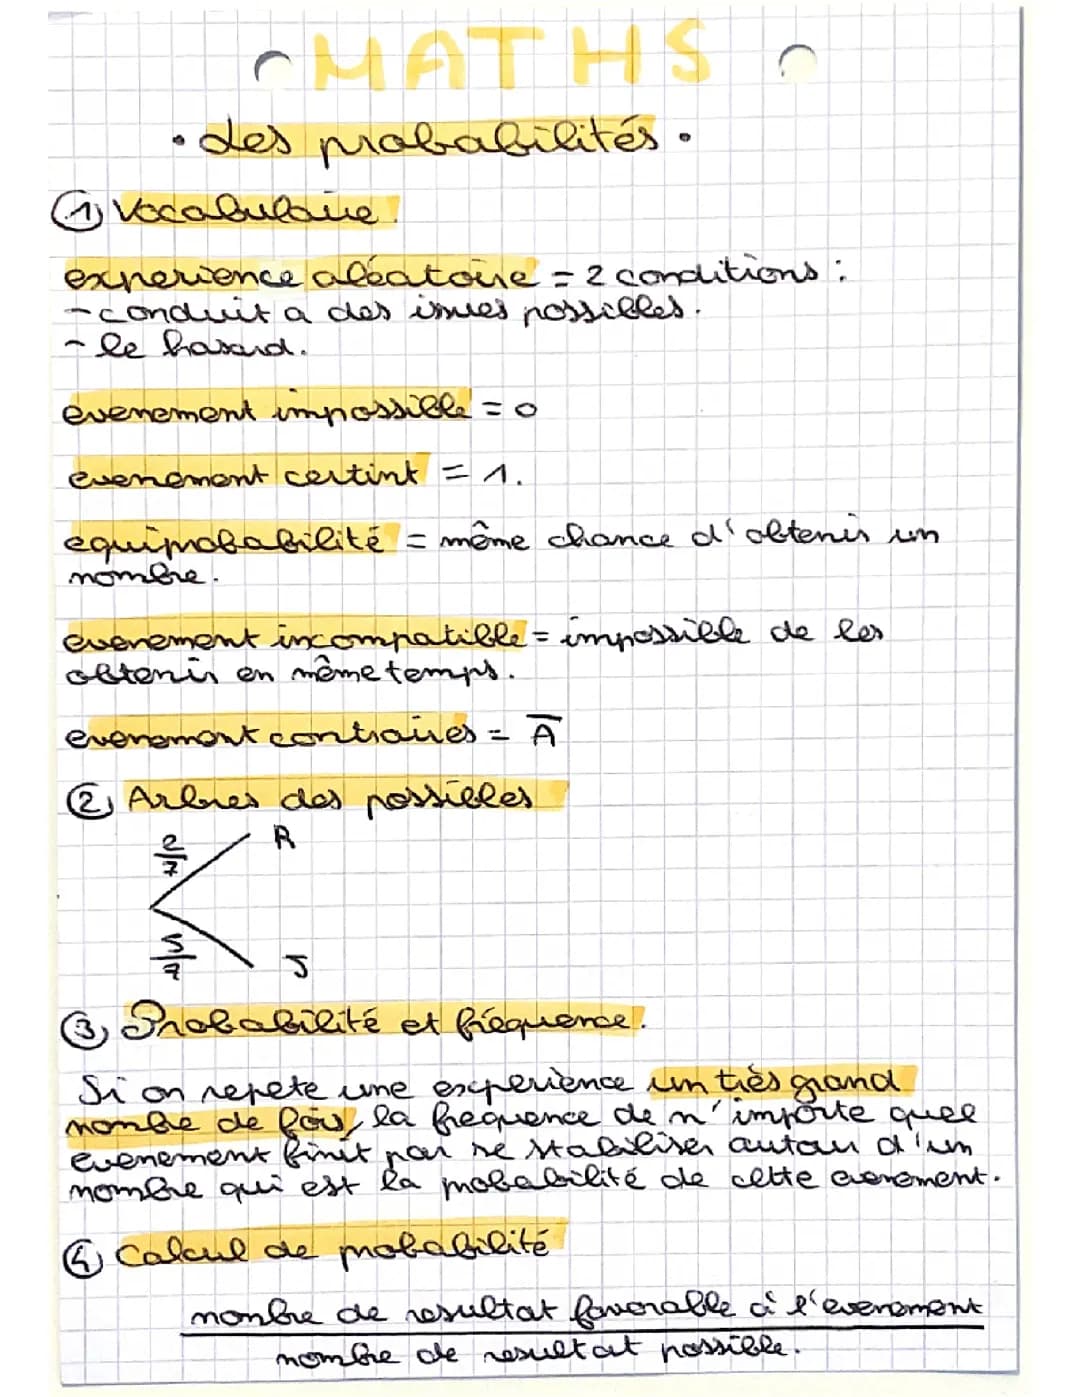 MATHS
• des probabilités •
① Vocabulaire.
experience aléatoire = 2 conditions :
- conduit a des issues possibles.
- le hasard.
evenement impossible = 0
evenement certint = 1.
equiprobabilité = même chance d'obtenir un
nombre.
evenement incompatible = impossible de les
obtenir en même temps.
evenement contraires = A̅
② Arbres des possibles
2/7 R
5/7 J
③ Probabilité et fréquence.
Si on repete une experience un très grand
nombre de fois, la frequence de n'importe quel
evenement finit par se stabiliser autour d'un
nombre qui est la probabilité de cette evenement.
④ Calcul de probabilité
nombre de resultat favorable à l'evenement
nombre de resultat possible.